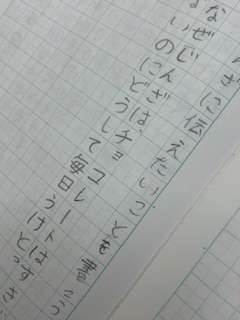 ざに伝えたいことを書こう
なぜじんざは、チョコレートはすき
いのにどうして毎日うけと。